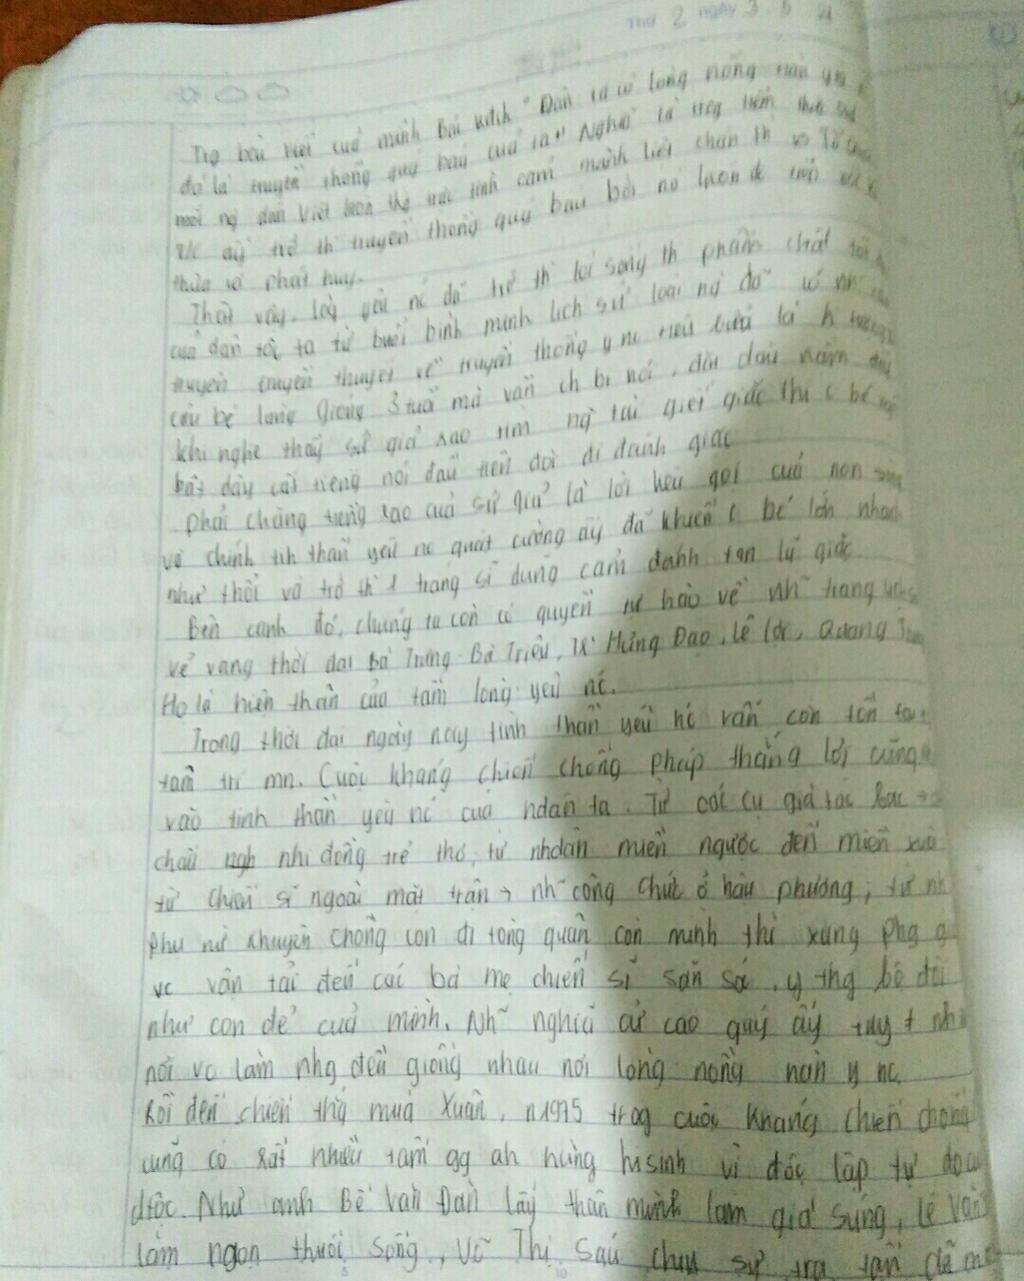 Thứ 2 ngày 3 5 21
Trg bài viết của mình Bác viết "Dân ta có lòng nồng nàn yêu
đó là truyền thống quý báu của ta" Nghĩa là trg tiềm thức
mỗi ng dân Việt luôn thg trực tình cảm mãnh liệt chân th vs Tổ
ấy trở th truyền thống quý báu bởi nó luôn đc tiếp
thừa và phát huy.
Thật vậy, lòg yêu nc đã trở th lối sống th phẩm chất tốt
của dân tộc ta từ buổi bình minh lịch sử loài ng đã có nh
truyền thuyết về truyền thống y nc tiêu biểu là h tượng
cậu bé làng Gióng 3 tuổi mà vẫn ch bt nói, đặt đâu nằm đấy
khi nghe thấy sứ giả rao tìm ng tài giết giặc thì c bé
bật dậy cất tiếng nói đầu tiên đòi đi đánh giặc
phải chăng tiếng rao của sứ giả là lời kêu gọi của non sông
và chính tih thần yêu nc quật cường ấy đã khiến c bé lớn nhanh
như thổi và trở th 1 tráng sĩ dũng cảm đánh tan lũ giặc.
Bên cạnh đó, chúng ta còn có quyền tự hào về nh~ trang
vẻ vang thời đại Bà Trưng Bà Triệu, Tr Hưng Đạo, Lê Lợi, Quang
Họ là hiện thân của tấm lòng yêu nc.
Trong thời đại ngày nay tinh thần yêu nc vẫn còn tồn
tâm trí mn. Cuộc kháng chiến chống Pháp thắng lợi cũng
vào tinh thần yêu nc của ndân ta. Từ các cụ già tóc bạc
cháu nhi đồng trẻ thơ, từ nhdân miền ngược đến miền
từ chiến sĩ ngoài mặt trận → nh~ công chức ở hậu phương, từ nh
phụ nữ khuyên chồng con đi tòng quân còn mình thì xung phg
vc vận tải đến các bà mẹ chiến sĩ săn sóc, y thg bộ đội
như con đẻ của mình. Nh~ nghĩa cử cao quý ấy tuy
nơi vc làm nhg đều giống nhau nơi lòng nồng nàn y nc.
Rồi đến chiến thg mùa Xuân, n 1975 trog cuộc kháng chiến chống
cũng có rất nhiều tấm gg ah hùng hi sinh vì độc lập tự do
dtộc. Như anh Bế Văn Đàn lấy thân mình làm giá súng, Lê Văn
làm ngọn đuốc sống, Võ Thị Sáu chịu sự tra tấn dã